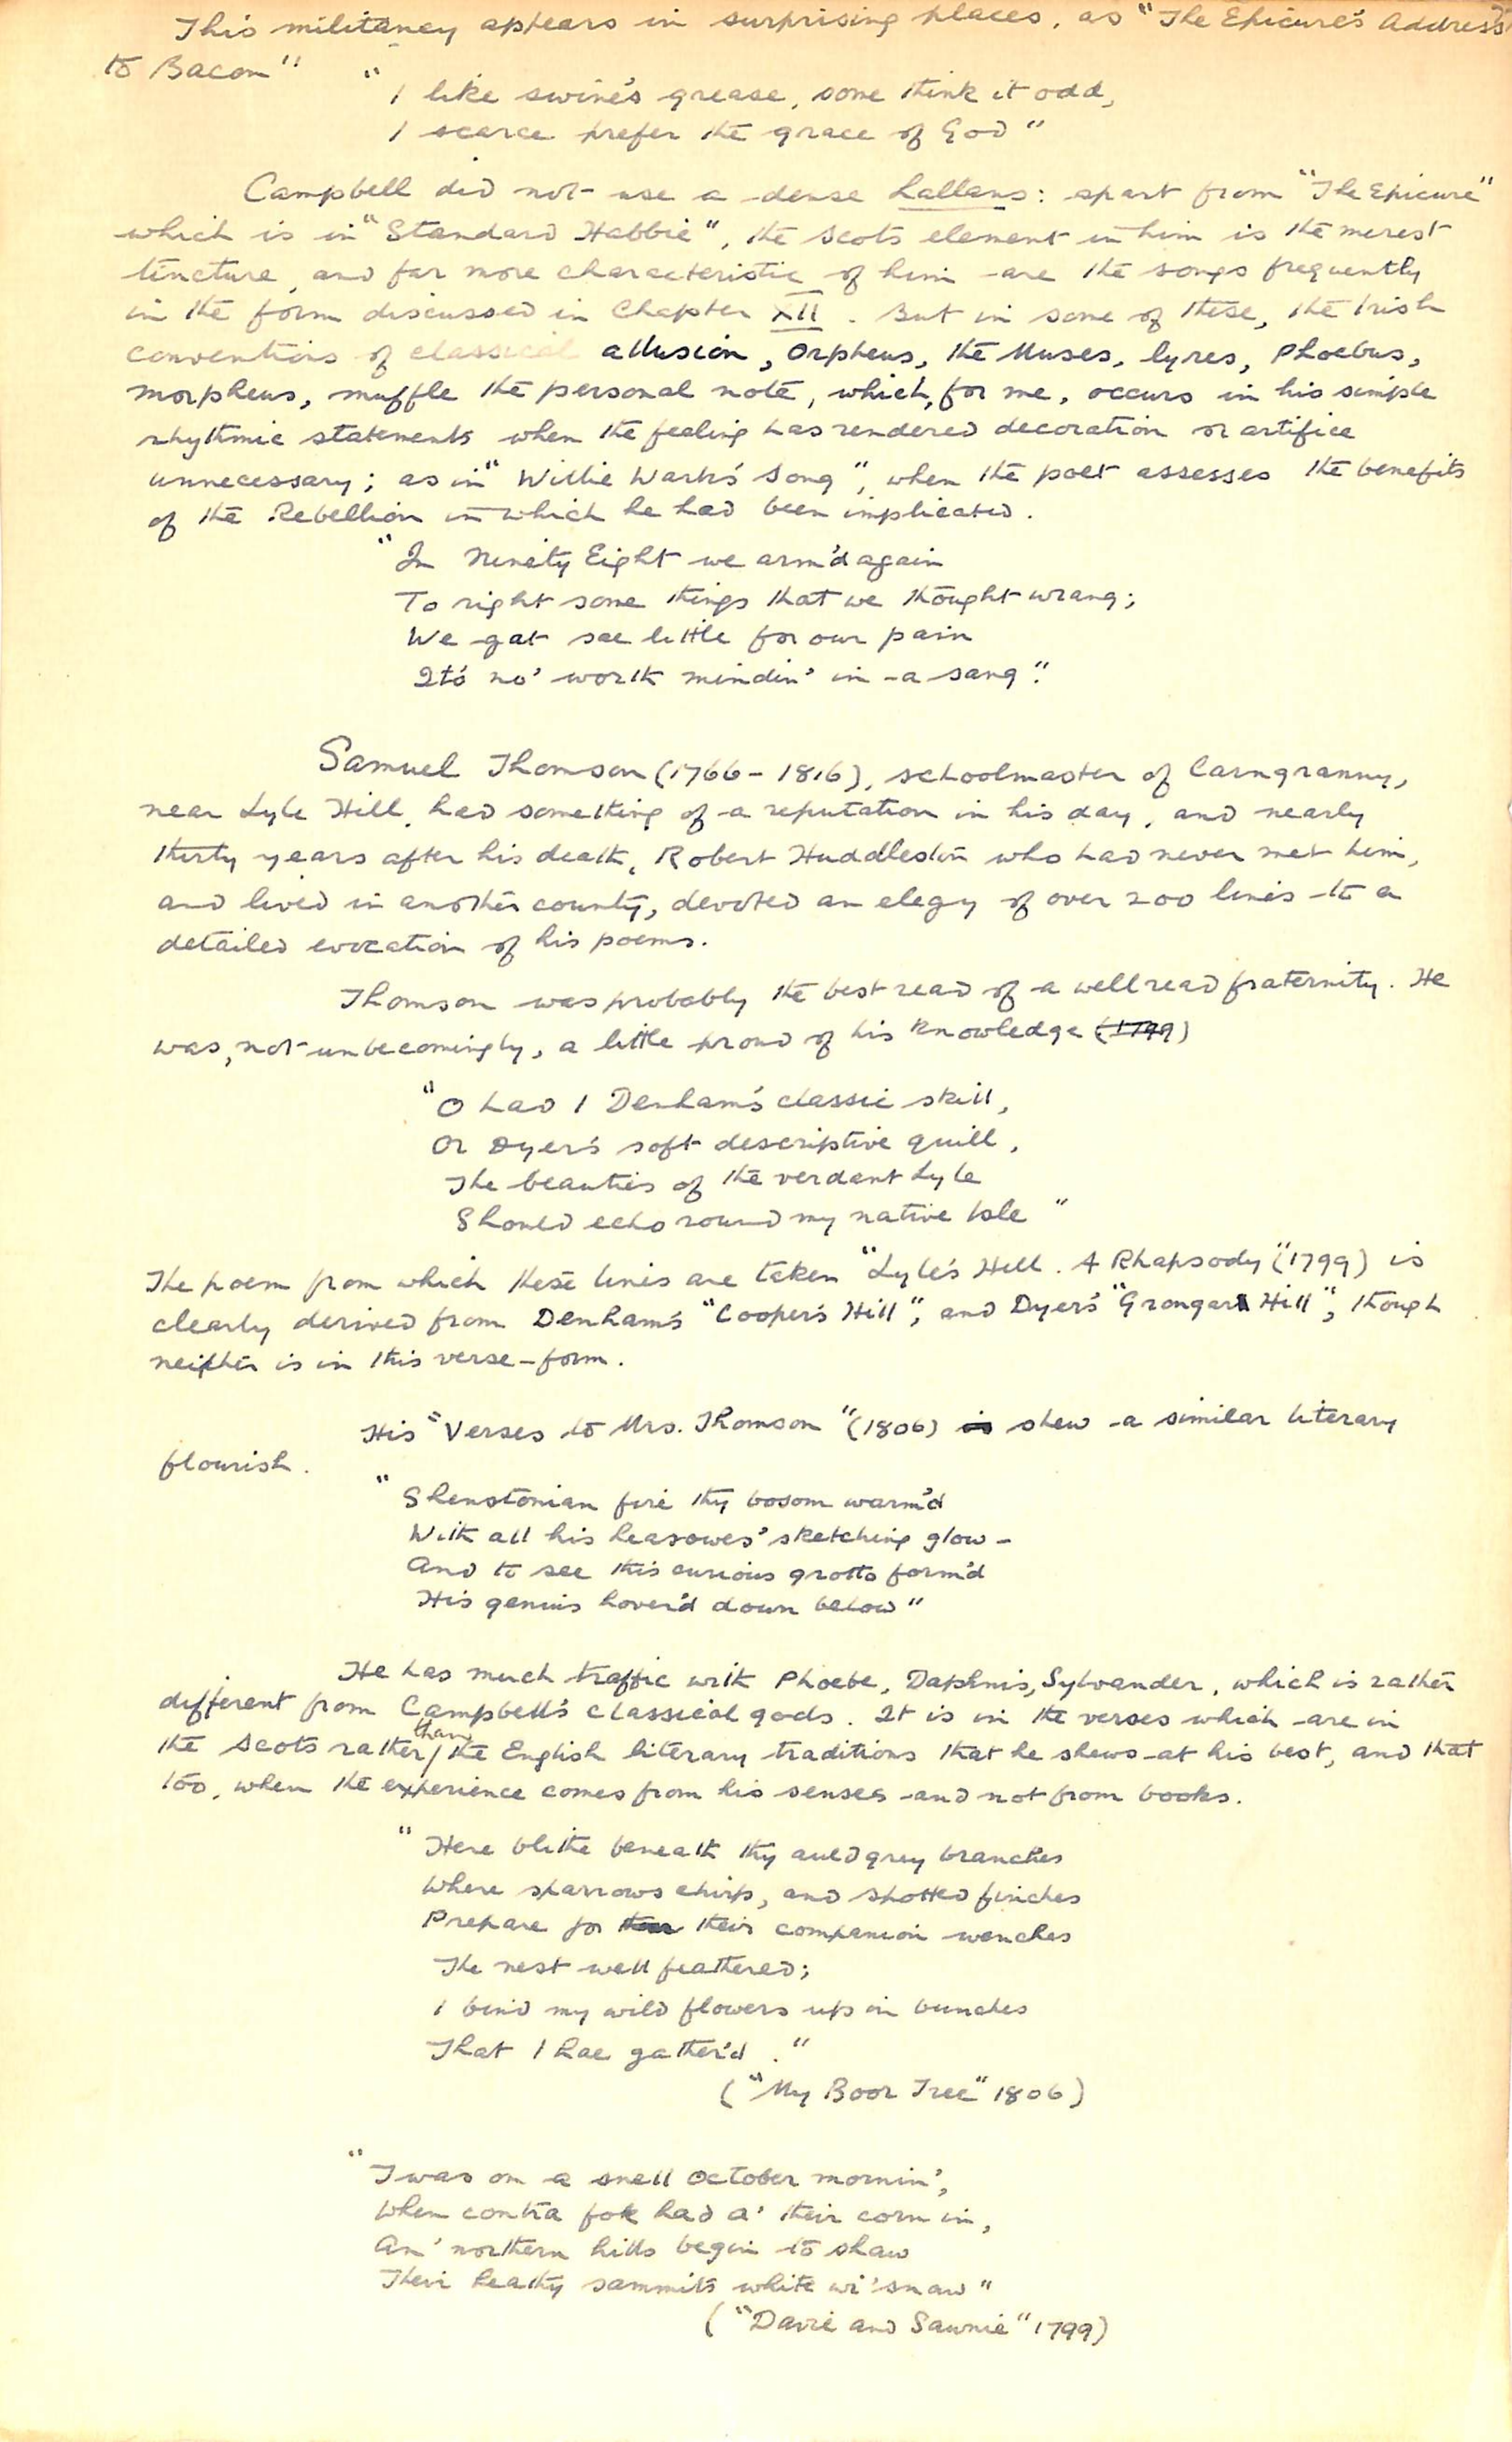 This militancy appears in surprising places, as "The Epicure's Address
to Bacon"
"I like swine's grease, some think it odd,
I scarce prefer the grace of God"
Campbell did not use a dense Lallans: apart from "The Epicure"
which is in "Standard Habbie", the Scots element in him is the merest
tincture, and far more characteristic of him are the songs frequently
in the form discussed in Chapter XII. But in some of these, the Irish
conventions of classical allusion, Orpheus, the Muses, lyres, Phoebus,
Morpheus, muffle the personal note, which, for me, occurs in his simple
rhythmic statements when the feeling has rendered decoration or artifice
unnecessary; as in "Willie Wark's Song", when the poet assesses the benefits
of the Rebellion in which he had been implicated.
"In Ninety Eight we arm'd again
To right some things that we thought wrang;
We gat sae little for our pain
It's no' worth mindin' in a sang".
Samuel Thomson (1766-1816), schoolmaster of Carngranny,
near Lyle Hill, had something of a reputation in his day, and nearly
thirty years after his death, Robert Huddleston who had never met him,
and lived in another county, devoted an elegy of over 200 lines to a
detailed evocation of his poems.
Thomson was probably the best read of a well read fraternity. He
was, not unbecomingly, a little proud of his knowledge (1799)
"O had I Denham's classic skill,
Or Dyer's soft descriptive quill,
The beauties of the verdant Lyle
Should echo round my native Isle"
The poem from which these lines are taken "Lyle's Hill. A Rhapsody" (1799) is
clearly derived from Denham's "Cooper's Hill", and Dyer's "Grongar Hill", though
neither is in this verse-form.
His "Verses to Mrs. Thomson" (1806) is shew a similar literary
flourish.
"Shenstonian fire thy bosom warm'd
With all his Leasowes' sketching glow -
And to see this curious grotto form'd
His genius hover'd down below"
He has much traffic with Phoebe, Daphnis, Sylvander, which is rather
different from Campbell's classical gods. It is in the verses which are in
the Scots rather than the English literary traditions that he shews at his best, and that
too, when the experience comes from his senses and not from books.
"Here blithe beneath thy auld grey branches
Where sparrows chirp, and spotted finches
Prepare for their companion wenches
The nest well feathered;
I bind my wild flowers up in bunches
That I hae gather'd."
("My Boor Tree" 1806)
"Twas on a snell October mornin',
When contra fok had a' their corn in,
An' northern hills begin to shaw
Their heathy sammits white wi' snaw"
("Davie and Sawnie" 1799)